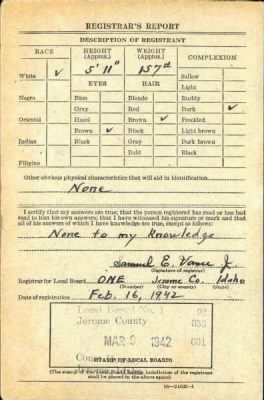 REGISTRAR'S REPORT
DESCRIPTION OF REGISTRANT
RACE HEIGHT (Approx.) WEIGHT (Approx.) COMPLEXION
5' 11" 157#
White ✓ EYES HAIR Sallow
Light
Negro Blue Blonde Ruddy
Gray Red Dark ✓
Oriental Hazel Brown ✓ Freckled
Brown ✓ Black Light brown
Indian Black Gray Dark brown
Bald Black
Filipino
Other obvious physical characteristics that will aid in identification
None
I certify that my answers are true; that the person registered has read or has had
read to him his own answers; that I have witnessed his signature or mark and that
all of his answers of which I have knowledge are true, except as follows:
None to my knowledge
Samuel E. Vance Jr.
(Signature of registrar)
Registrar for Local Board ONE Jerome Co. Idaho
(Number) (City or county) (State)
Date of registration Feb. 16, 1942
Local Board No. 1
Jerome County 053
MAR 1942 001
STAMP OF LOCAL BOARD
(The stamp of the Local Board having jurisdiction of the registrant
shall be placed in the above space)